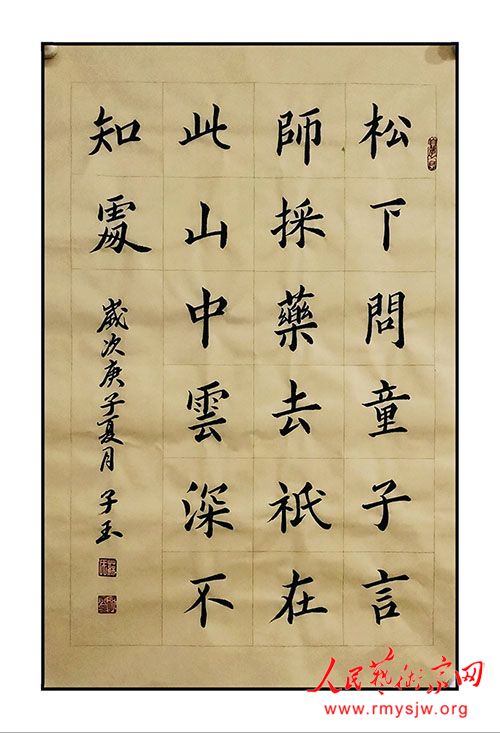 松下問童子言
師採藥去祇在
此山中雲深不
知處
歲次庚子夏月 子玉
人民藝術家网
www.rmysjw.org